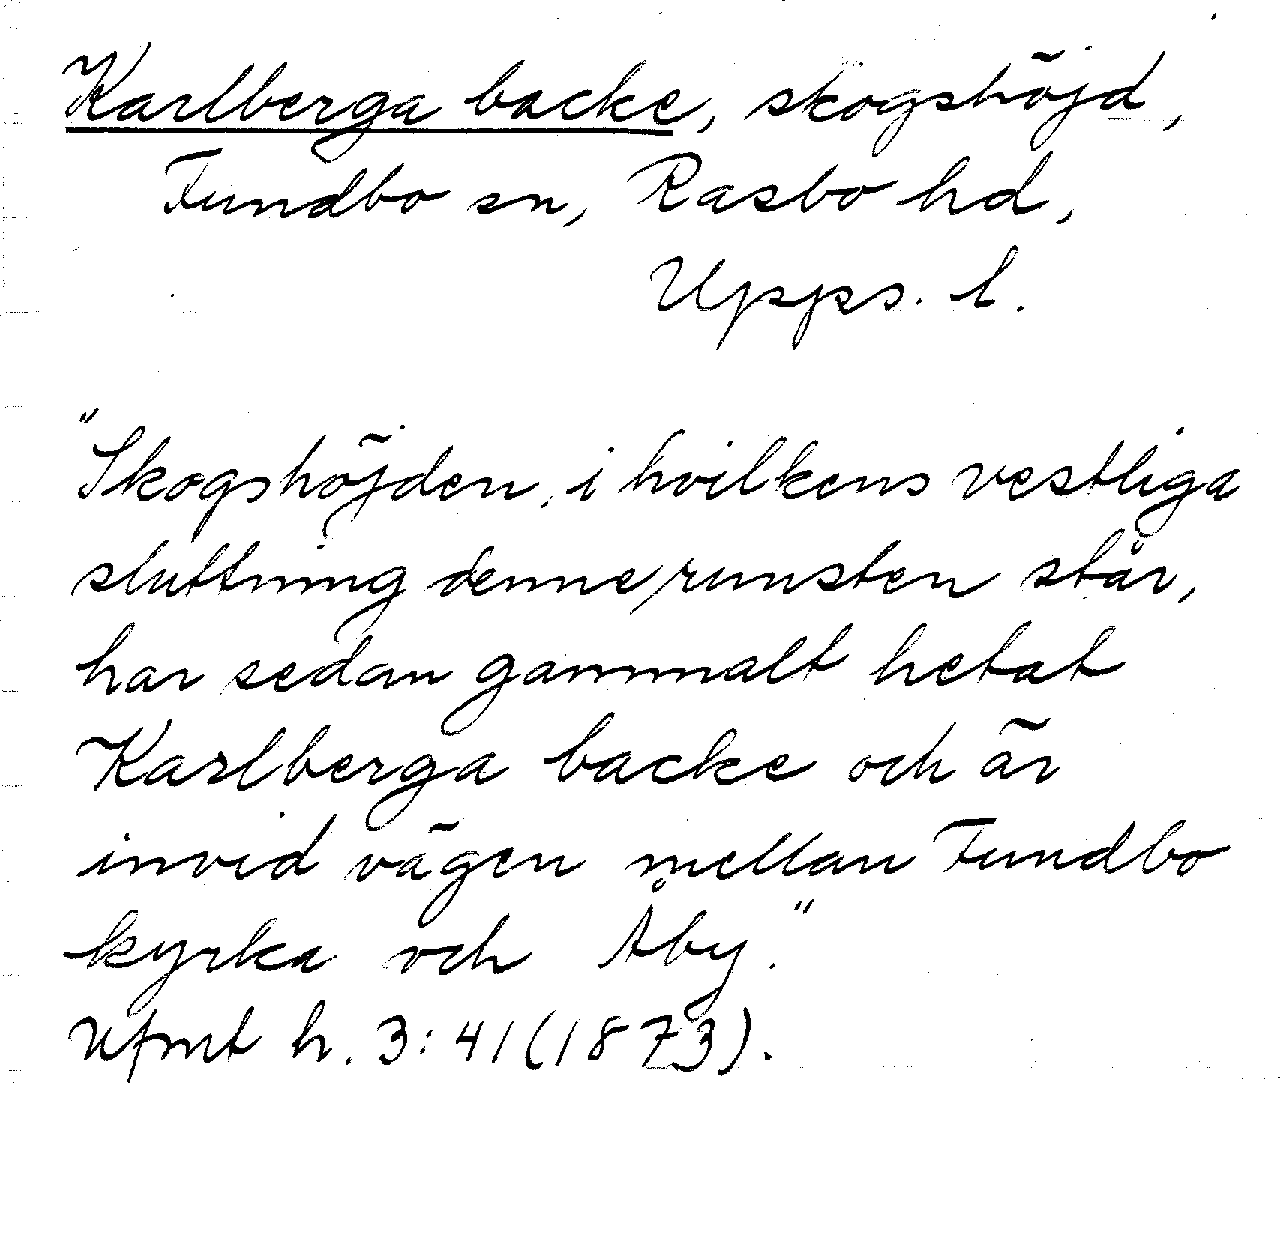 Karlberga backe, skogshöjd,
Funbdo sn, Rasbo hd,
Upps. l.
"Skogshöjden, i hvilkens vestliga
sluttning denne runsten står,
har sedan gammalt hetat
Karlberga backe och är
invid vägen mellan Fundbo
kyrka och Åby."
Ufmt h. 3:41(1873).